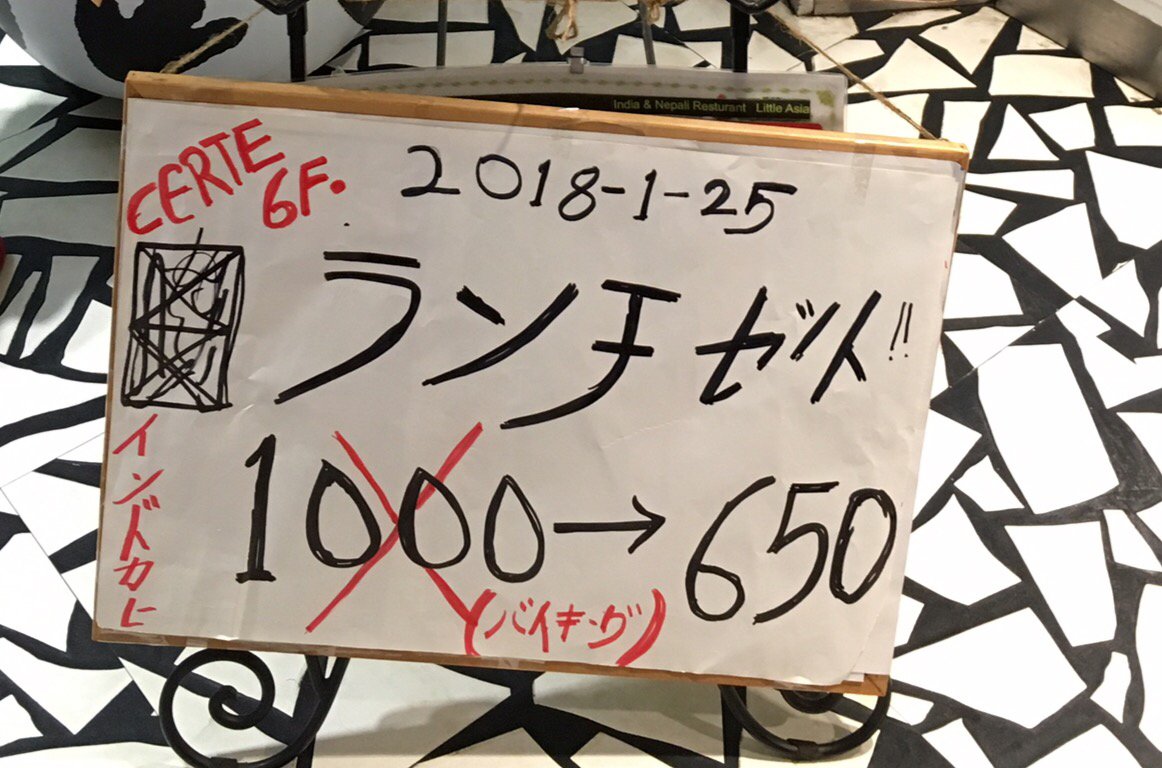 India & Nepali Resturant Little Asia
CERTE
6F.
2018-1-25
ランチセット!!
インドカヒ
1000→650
(バイキング)